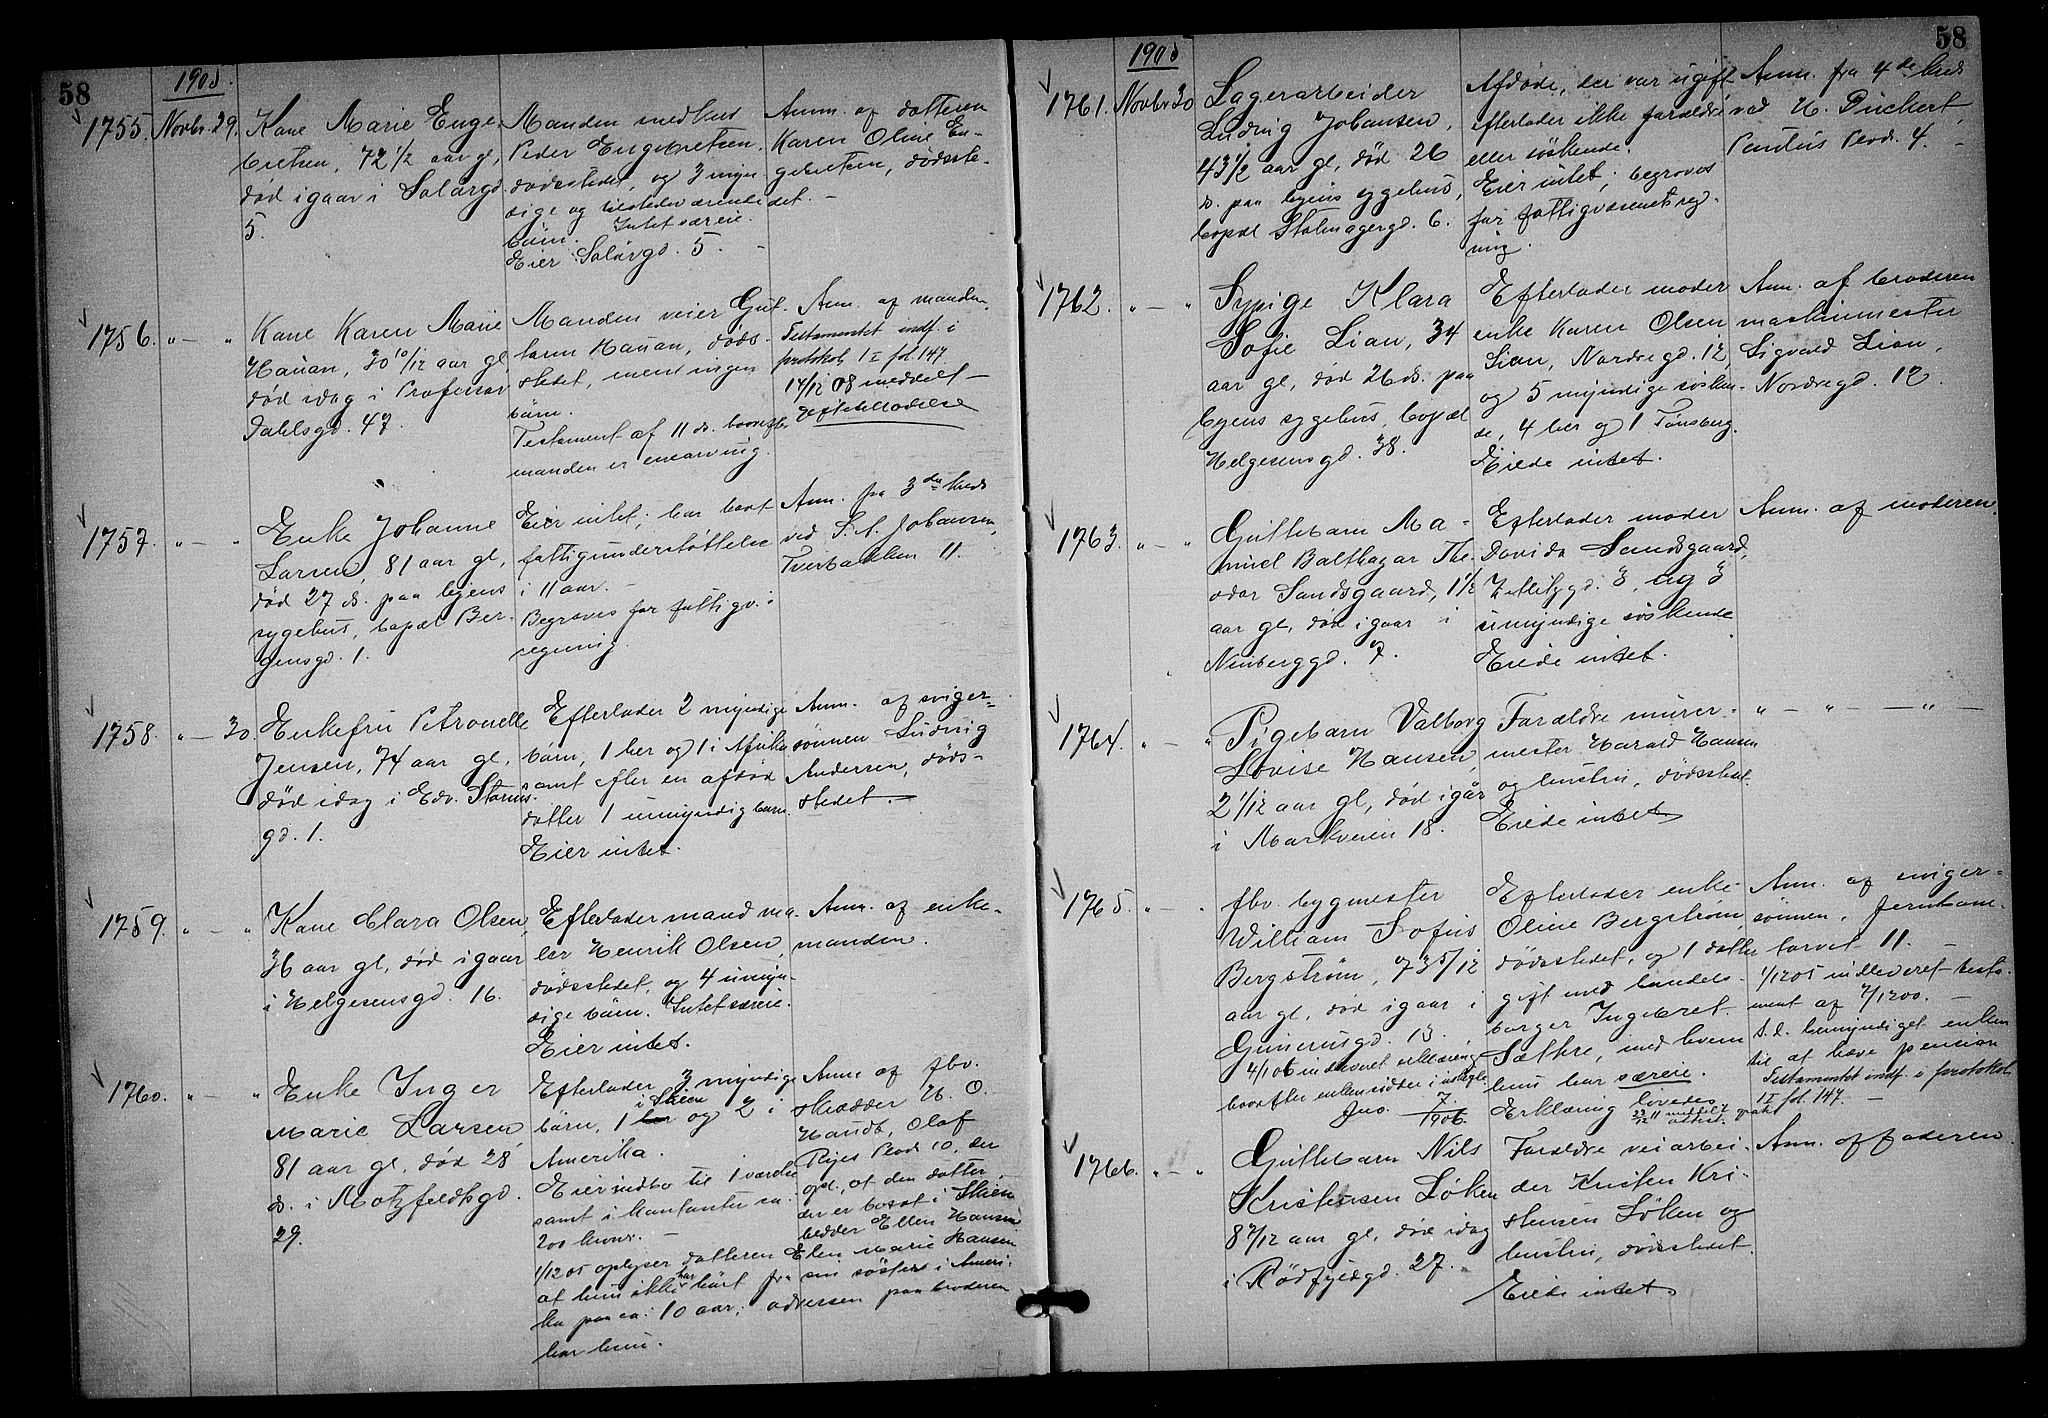 58
1905.
1755. Novbr. 29.
Kone Marie Enge-
bretsen, 72 1/2 aar gl,
død igaar i Solørgd.
5.
Manden medhus
Peder Engebretsen,
dødsstedet, og 3 myn-
dige og tilstedeværende
børn. Intet særeie.
Eier Solørgd. 5. -
Anm. af datteren
Karen Oline En-
gebretsen, dødsste-
det. -
1756. " - "
Kone Karen Marie
Hauan, 30 10/12 aar gl,
død idag i Professor
Dahlsgd. 47.
Manden veier Gul-
Hauan, døds-
stedet, men ingen
børn.
Testament af 11 ds. hvorefter
manden er enearving.
Anm. af manden.
Testamentet indf. i
protokol 1 I fol 147
14/12 08 meddelt
1757. " - "
Enke Johanne
Larsen, 81 aar gl,
død 27 ds. paa byens
sygehus, bopæl Ber-
gensgd. 1.
Eier intet; har havt
fattigunderstøttelse
i 11 aar. -
Begraves for fattigv.s
regning.
Anm. fra 3die kreds
ved S. A. Johansen,
Tverbakken 11.
1758. " - 30.
Enkefru Petronelle
Jensen, 74 aar gl,
død idag i Edv. Storms-
gd. 1.
Efterlader 2 myndige
børn, 1 her og 1 i Afrika
samt efter en afdød
datter 1 umyndig barn.
Eier intet.
Anm. af sviger-
sønnen Ludvig
Andersen, døds-
stedet. -
1759. " - "
Kone Clara Olsen,
36 aar gl, død igaar
i Helgesensgd. 16.
Efterlader mand ma-
ler Henrik Olsen,
dødsstedet, og 4 umyn-
dige børn. Intet særeie.
Eier intet.
Anm. af enke-
manden.
1760. " - "
Enke Inger
Marie Larsen,
81 aar gl, død 28
ds. i Motzfeldtsgd.
29.
Efterlader 3 myndige
i Skien
børn, 1 her og 2 i
Amerika.
Eier indbo til 1 værdi
samt i kontanter ca.
200 kroner. -
1/12 05 oplyser datteren Elen Marie Hansen
at hun ikke har hørt fra sin søster i Ameri-
ka paa ca. 10 aar; adressen paa broderen
har hun.
Anm. af fbv.
skrædder H. O.
Haudt, Olaf
Ryes Plads 10, der
opl., at den datter
der er bosat i Skien
hedder Ellen Hansen
58
1905
1761. Novbr 30
Lagerarbeider
Ludvig Johansen,
43 1/2 aar gl, død 26
ds. paa byens sygehus,
bopæl Stolmagergd. 6.
Afdøde, der var ugift
efterlader ikke forældre
eller søskende.
Eier intet; begraves
for fattigvæsenets reg-
ning.
Anm. fra 4de kreds
ved H. Püchert,
Pontus Plads. 4. -
1762. " - "
Sypige Klara
Sofie Lian, 34
aar gl, død 26 ds. paa
byens sygehus, bopæl
Helgesensgd. 38.
Efterlader moder
enke Karen Olsen
Lian, Nordregd. 12
og 5 myndige søsken-
de, 4 her og 1 Tønsberg.
Eiede intet.
Anm. af broderen
maskinmester
Sigvald Lian,
Nordregd. 12.
1763. " - "
Guttebarn Ma-
nuel Balthazar The-
odor Sandsgaard, 1 1/2
aar gl, død igaar i
Nünberggd. 7.
Efterlader moder
Davida Sandsgaard,
3, og 3
umyndige søskende
Eiede intet.
Anm. af moderen.
1764. " - "
Pigebarn Valborg
Lovise Hansen,
2 1/12 aar gl, død igår
i Markveien 18.
Forældre murer-
mester Harald Hansen
og hustru, dødsstedet.
Eiede intet
" - " - " -
1765. " - "
fbv. bygmester
William Sofus
Bergstrøm, 73 5/12
aar gl, død igaar i
Gunerusgd. 13.
4/1 06 indleveret erklæring
hvorefter enken sidder i uskiftet
Jno. 7/1906.
Efterlader enke
Oline Bergstrøm,
dødsstedet, og 1 datter
gift med handels-
borger Ingebret
Sæthre, med hvem
hun har særeie.
Erklæring lovedes
Anm. af sviger-
sønnen, Jernbane-
torvet 11. -
1/12 05 indleveret testa-
ment af 7/1 200. -
S. D. bemyndiget enken
til at hæve pension
Testamentet indf. i protokol
1 I fol 147. -
1766. " - "
Guttebarn Nils
Kristensen Løken
8 7/12 aar gl, død idag
i Rødfyldgd. 27.
Forældre veiarbei-
der Kristen Kri-
stensen Løken og
hustru, dødsstedet.
Eiede intet.
Anm. af faderen.